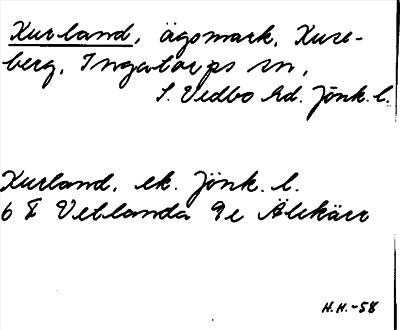 Kurland, ägomark, Kure-
berg, Ingatorps sn,
S. Vedbo hd. Jönk. l.
Kurland, ek. Jönk. l.
6 F Vetlanda 9e Älekärr
H.H.-58